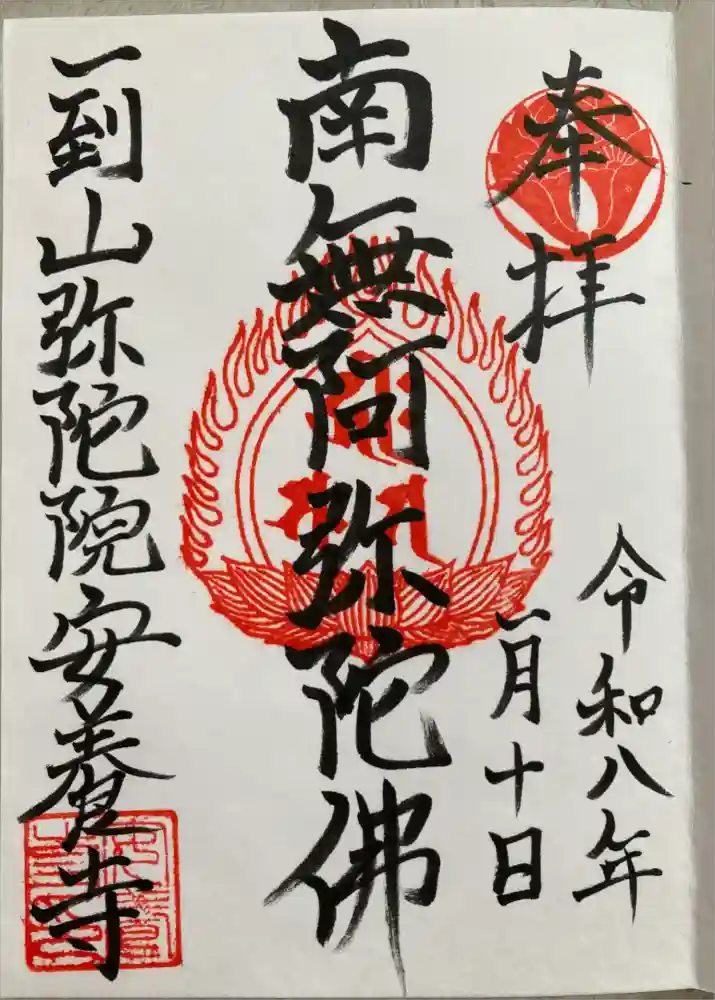 奉拝
令和八年
一月十日
南無阿弥陀佛
一到山弥陀院安養寺